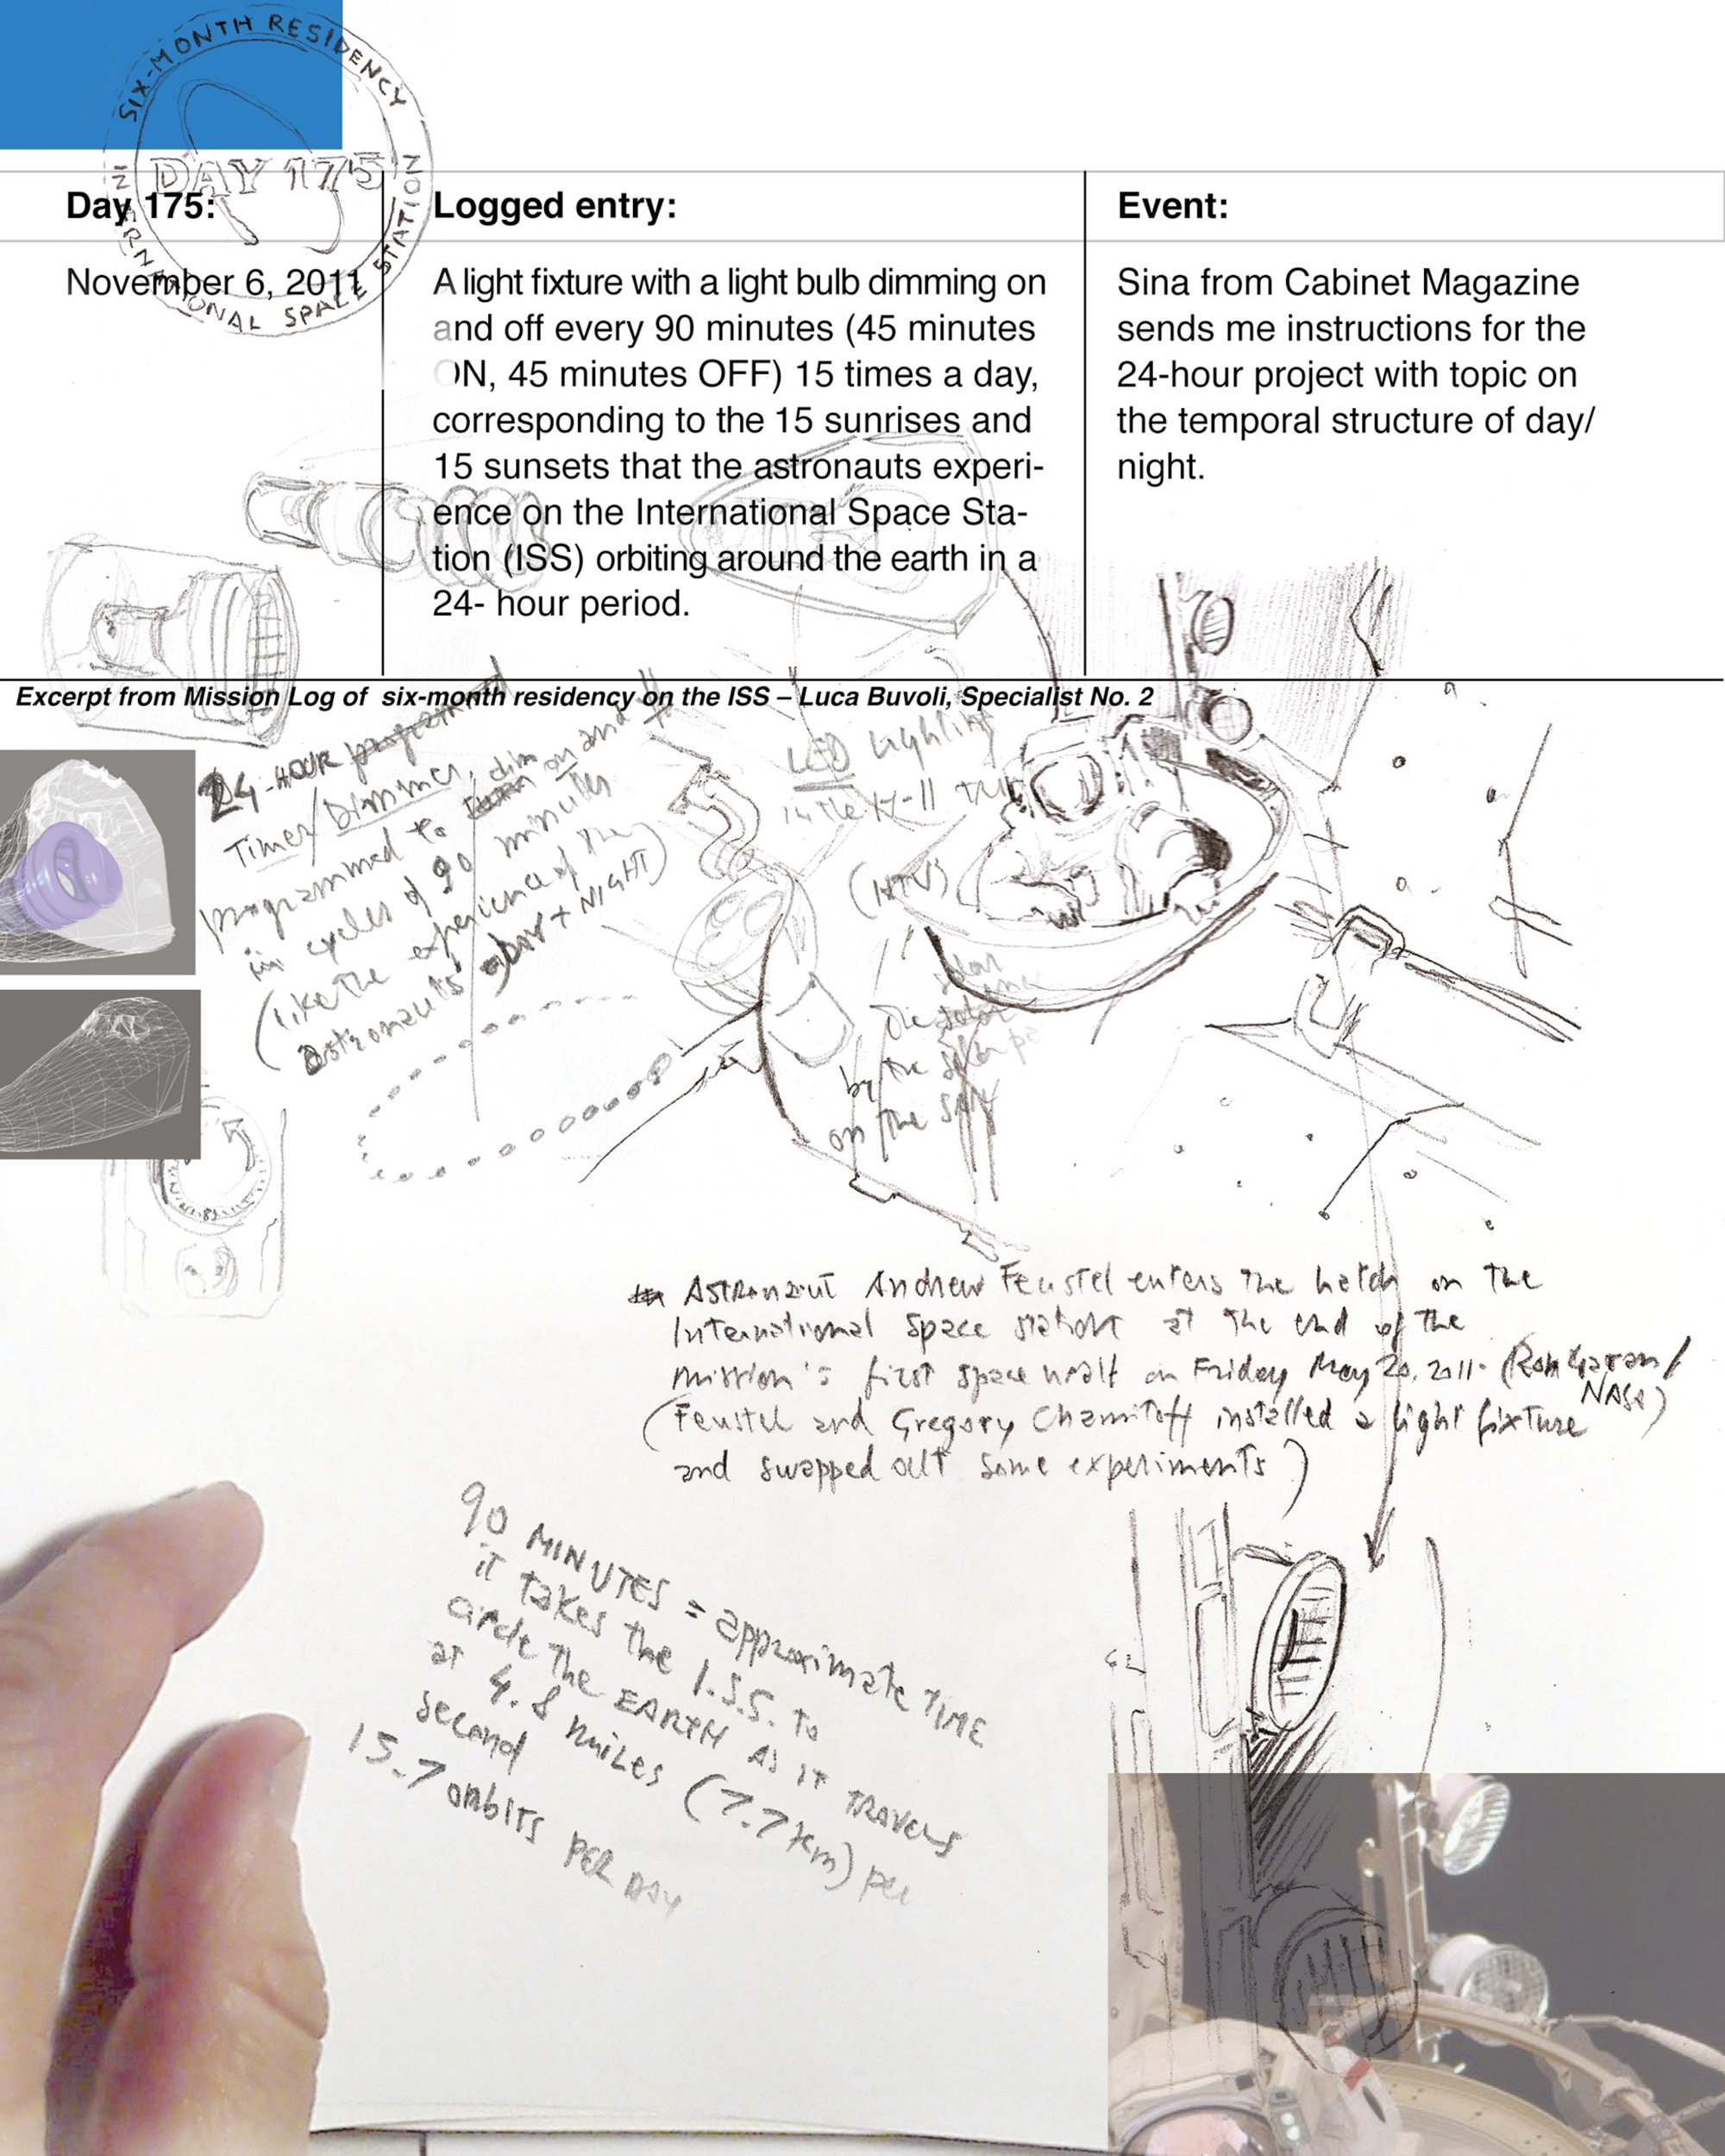 SIX-MONTH RESIDENCY
INTERNATIONAL SPACE STATION
DAY 175
Day 175:
Logged entry:
Event:
November 6, 2011
A light fixture with a light bulb dimming on
and off every 90 minutes (45 minutes
ON, 45 minutes OFF) 15 times a day,
corresponding to the 15 sunrises and
15 sunsets that the astronauts experi-
ence on the International Space Sta-
tion (ISS) orbiting around the earth in a
24- hour period.
Sina from Cabinet Magazine
sends me instructions for the
24-hour project with topic on
the temporal structure of day/
night.
Excerpt from Mission Log of six-month residency on the ISS – Luca Buvoli, Specialist No. 2
24-HOUR programmed
Timer/Dimmer,
programmed to dim on and
in cycles of 90 minutes
(like the experience of the
astronauts' DAY + NIGHT)
LED lighting
in the
(HTV)
solar
by the
on the
Astronaut Andrew Feustel enters the hatch on the
International Space Station at the end of the
mission's first space walk on Friday May 20, 2011. (Ron Garan/
NASA)
(Feustel and Gregory Chamitoff installed a light fixture
and swapped out some experiments)
90 MINUTES = approximate TIME
it takes the I.S.S. to
circle the EARTH AS IT TRAVELS
at 4.8 miles (7.7 km) per
second
15.7 orbits PER DAY